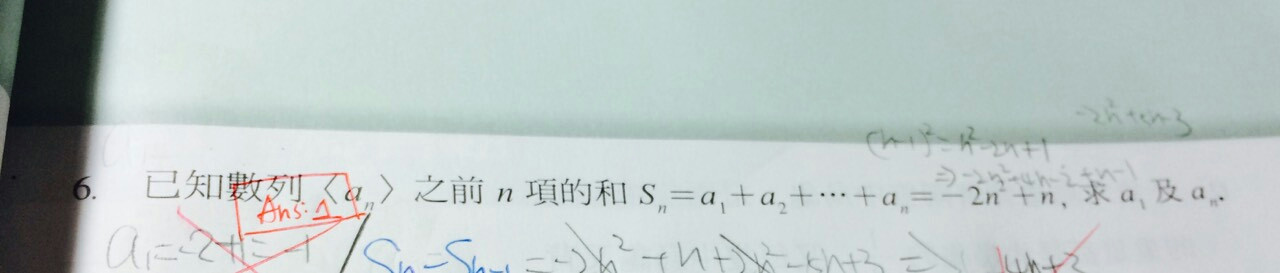 -2n²+4n-3
(n-1)²=n²-2n+1
⇒-2n²+4n-2+n-1
6. 已知數列〈aₙ〉之前 n 項的和 Sₙ=a₁+a₂+⋯+aₙ=-2n²+n, 求 a₁ 及 aₙ.
Ans: 1
a₁=-2+1=-1
Sₙ-Sₙ₋₁=-2n²+n+2n²-5n+3 ⇒